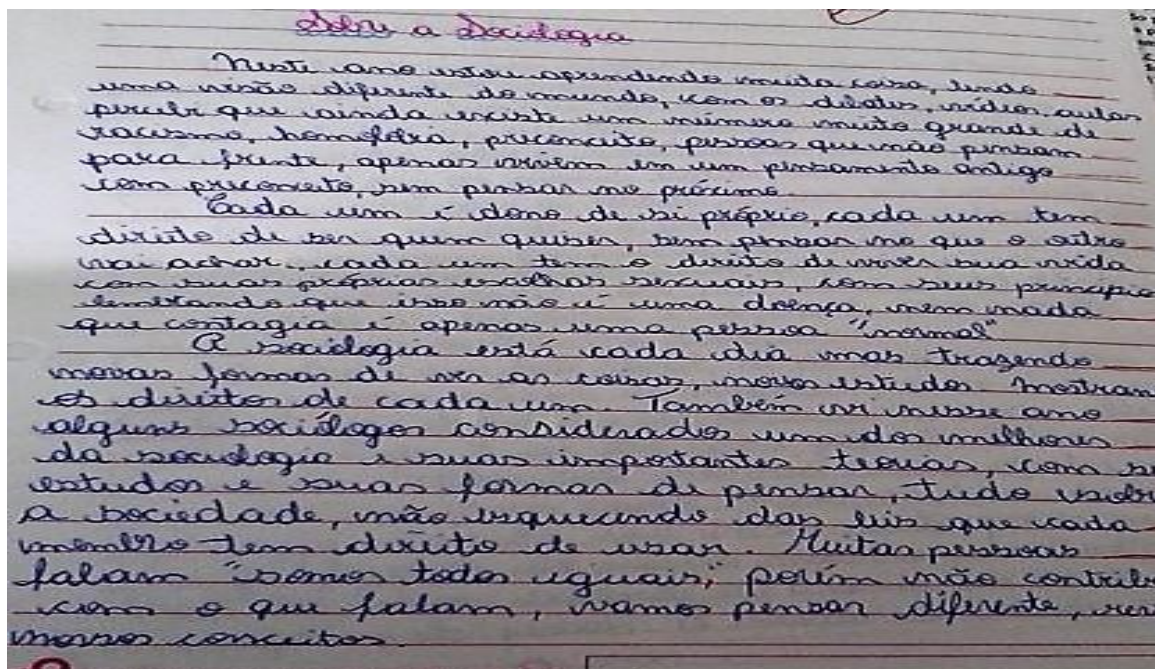 Sobre a Sociologia
Neste ano estou aprendendo muita coisa, tendo
uma visão diferente do mundo, com os debates, vídeos, aulas
percebi que ainda existe um número muito grande de
racismo, homofobia, preconceito, pessoas que não pensam
para frente, apenas vivem em um pensamento antigo
com preconceito, sem pensar no próximo.
Cada um é dono de si próprio, cada um tem
direito de ser quem quiser, sem pensar no que o outro
vai achar, cada um tem o direito de viver sua vida
com suas próprias escolhas sexuais, com seus principio
lembrando que isso não é uma doença, nem nada
que contagia é apenas uma pessoa "normal"
A sociologia está cada dia mas trazendo
novas formas de ver as coisas, novos estudos mostram
os direitos de cada um. Também vi nesse ano
alguns sociólogos considerados um dos melhores
da sociologia e suas importantes teorias, com
estudos e suas formas de pensar, tudo
a sociedade, não esquecendo das leis que cada
membro tem direito de usar. Muitas pessoas
falam "somos todos iguais", porém não
com o que falam, vamos pensar diferente,
nossos conceitos.